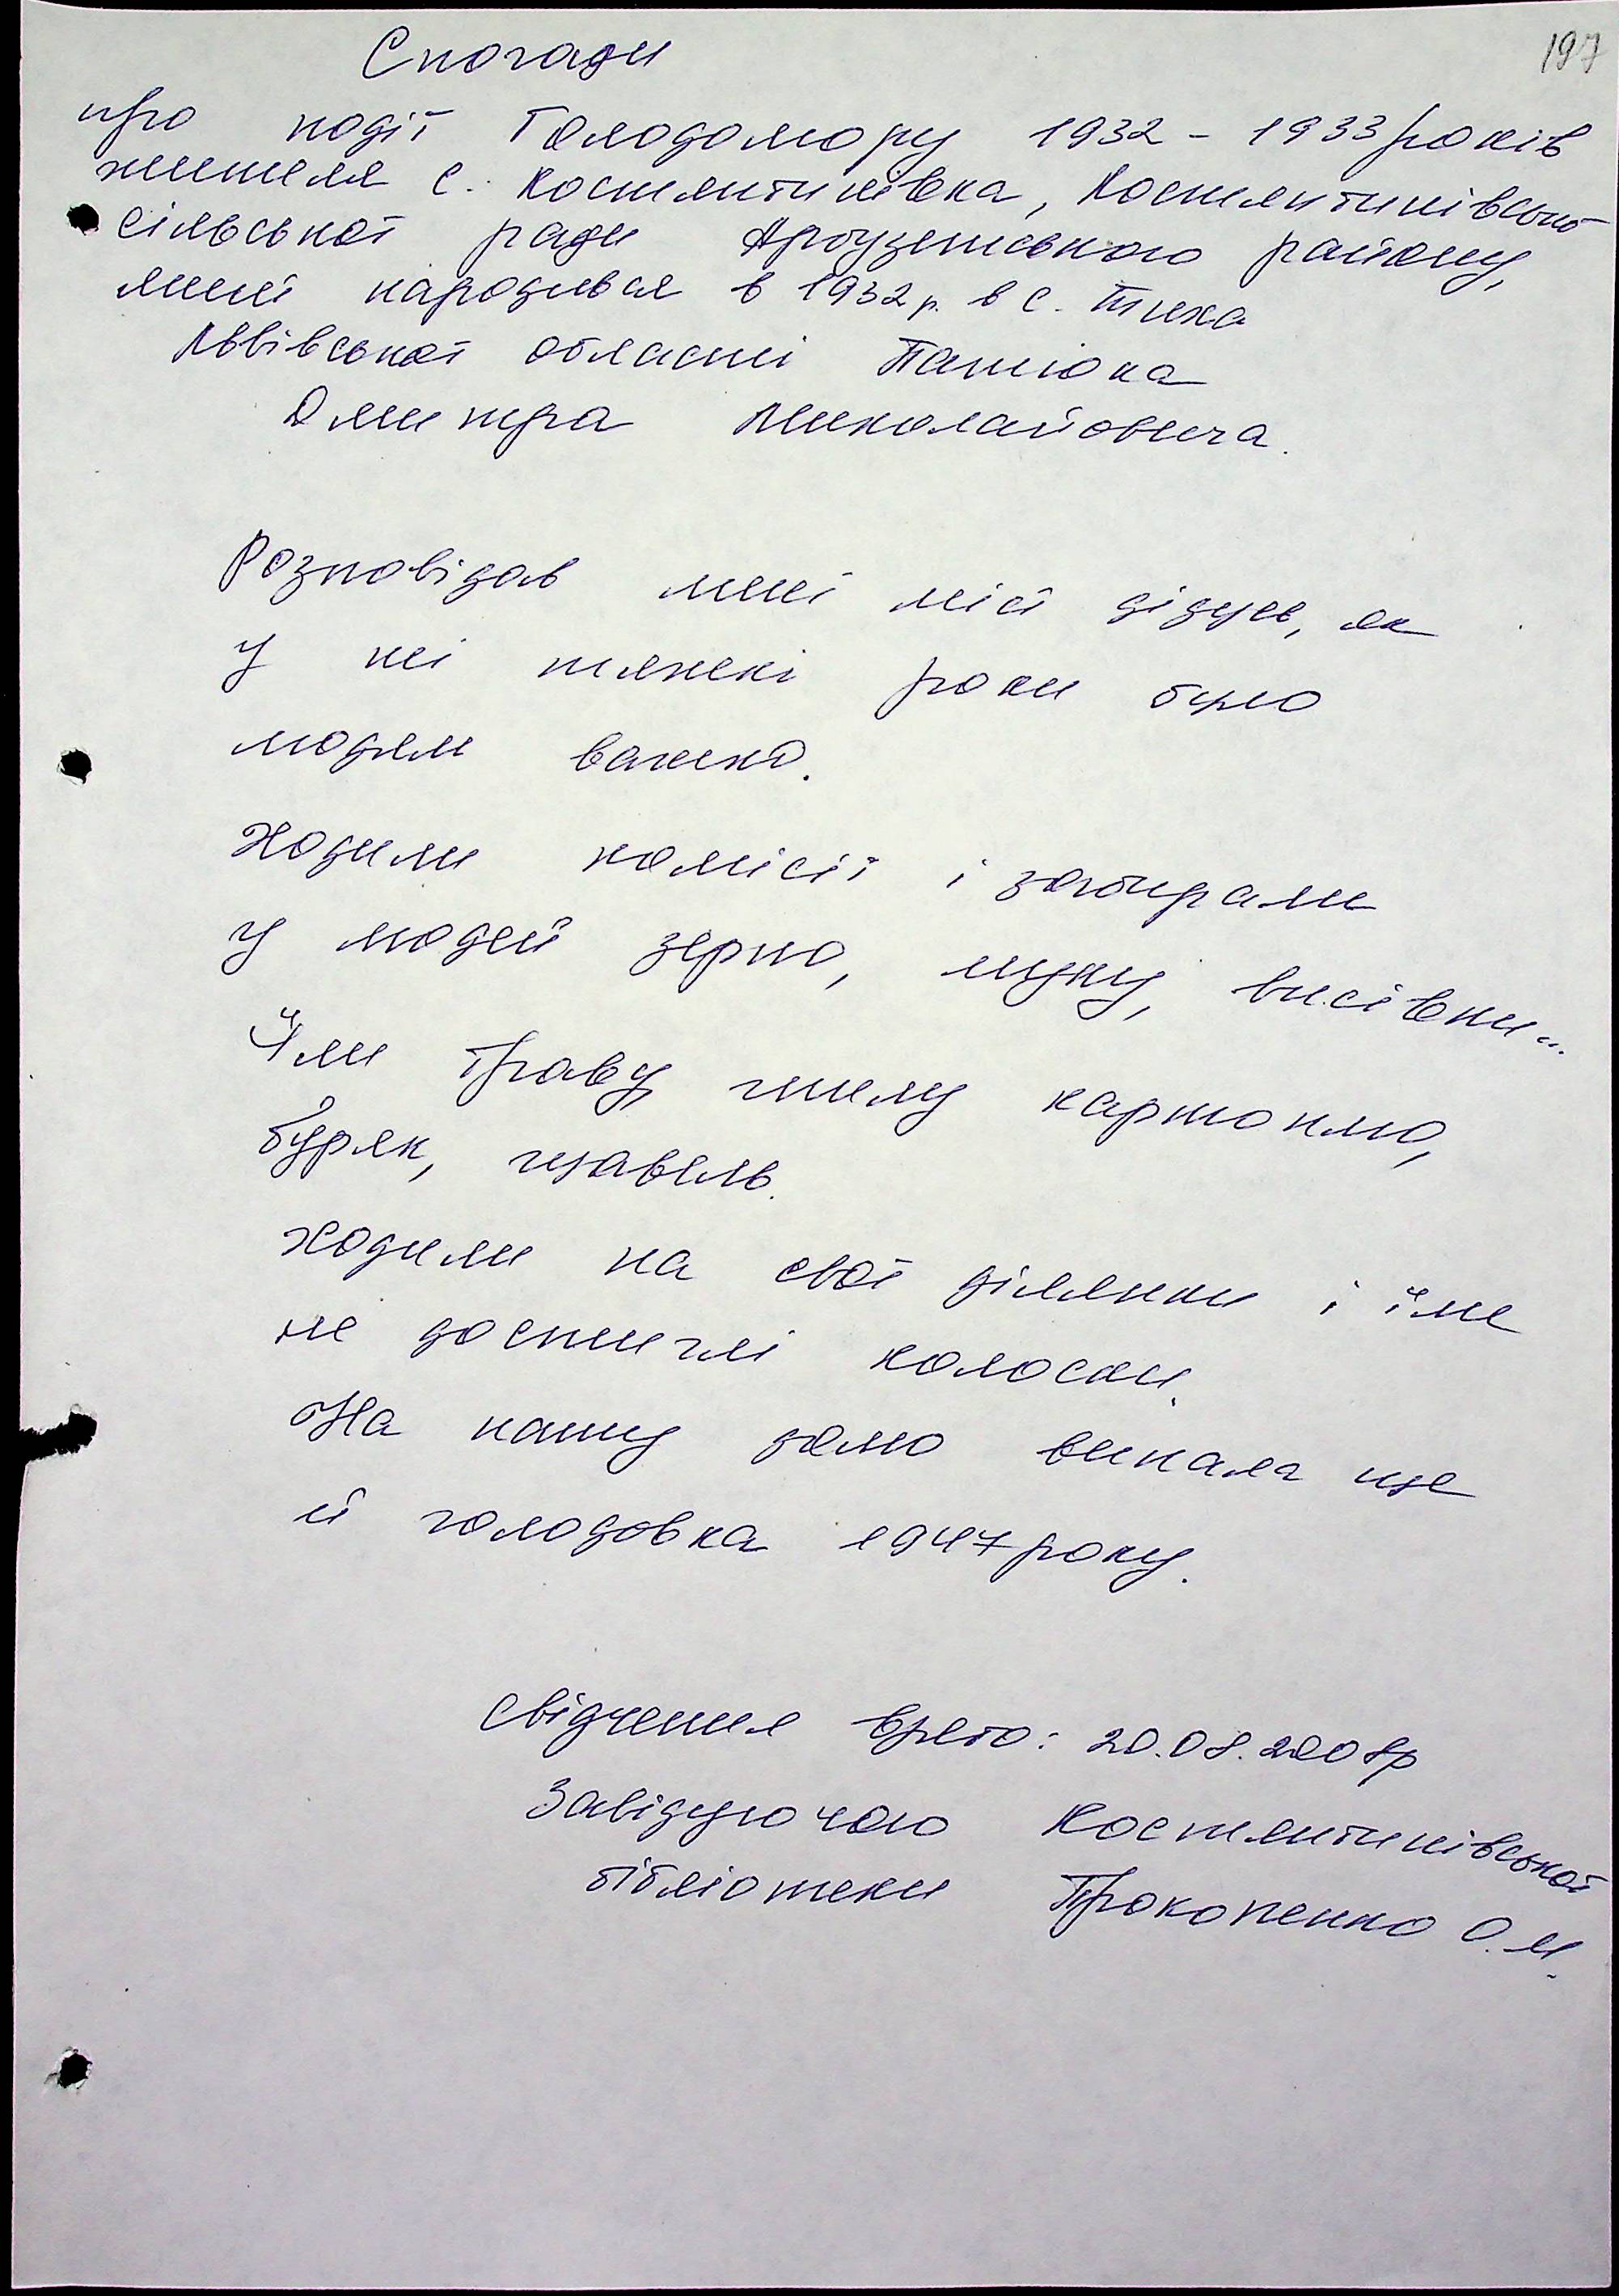 197
Спогади
про події Голодомору 1932 - 1933 років
жителя с. Костянтинівка, Костянтинівської
сільської ради Арбузинського району,
який народився в 1932 р. в с. Тиха
Львівської області Панюка
Дмитра Миколайовича.
Розповідав мені мій дідусь, як
у ті тяжкі роки було
людям важко.
Ходили комісії і забирали
у людей зерно, муку, висівки...
Їли траву, гнилу картоплю,
буряк, щавель.
Ходили на свої ділянки і їли
не доспиглі колоски.
На нашу долю випала ще
й голодовка 1947 року.
Свідчення взято: 20.08.2008р
Завідуючою Костянтинівської
бібліотеки Прокопенко О.М.